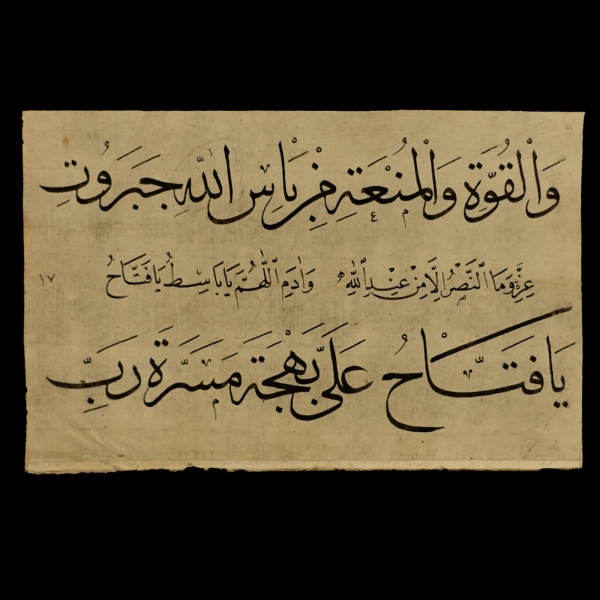 وَالْقُوَّةِ وَالْمَنْعَةِ مِنْ بَاسِ اللّٰهِ جَبَرُوتِ
عِزَّةٍ وَمَا النَّصْرُ اِلَّا مِنْ عِنْدِ اللّٰهِ وَادَمِ اللّٰهُمَّ يَا بَاسِطُ يَا فَتَّاحُ
١٧
يَا فَتَّاحُ عَلَىَّ بَهْجَةَ مَسَرَّةِ رَبِّ